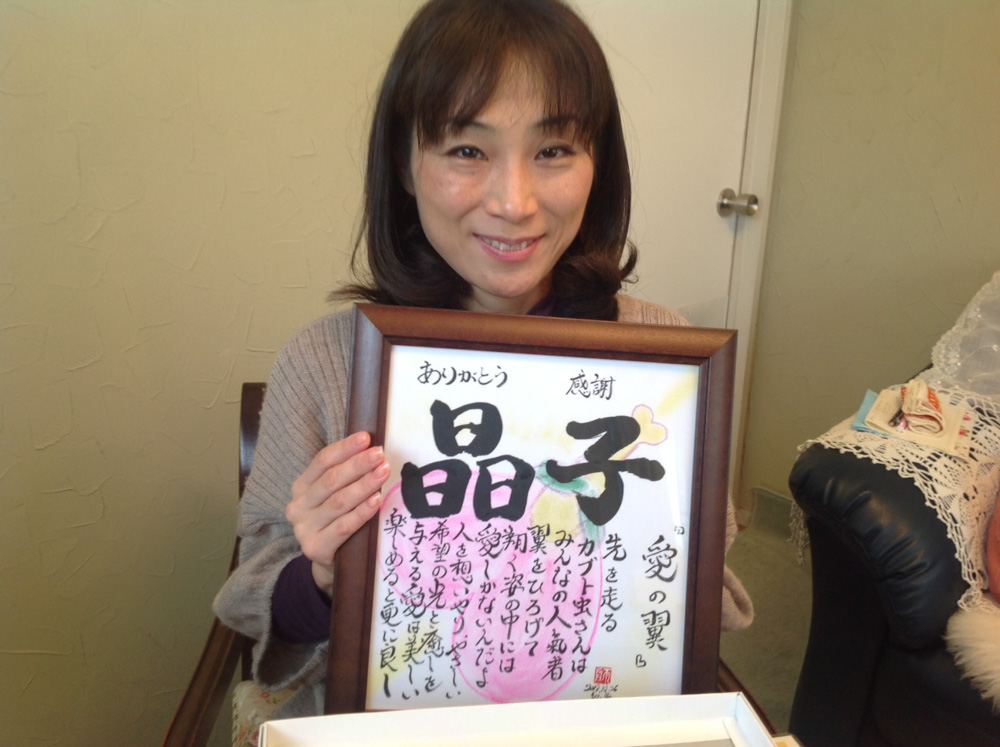 ありがとう
感謝
晶子
『愛の翼』
先を走る
カブト虫さんは
みんなの人氣者
翼をひろげて
翔く姿の中には
愛しかないんだよ
人を想いやりやさしい
希望の光と癒しを
与える愛は美しい
楽しめると更に良し